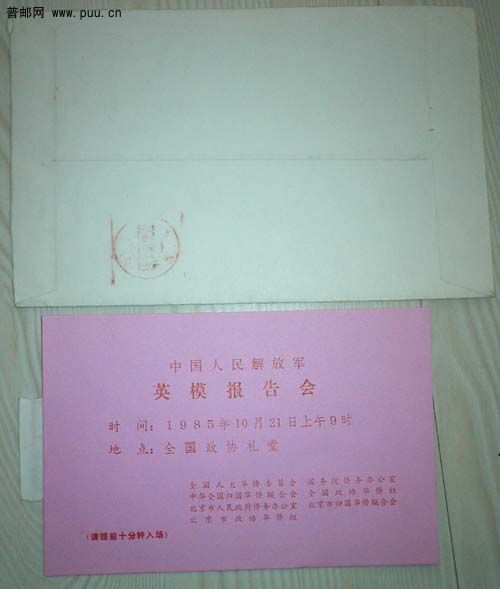 普邮网 www.puu.cn
中国人民解放军
英模报告会
时 间：1985年10月21日上午9时
地 点：全国政协礼堂
全国人大华侨委员会 国务院侨务办公室
中华全国归国华侨联合会 全国政协华侨组
北京市人民政府侨务办公室 北京市归国华侨联合会
北京市政协华侨组
(请提前十分钟入场)